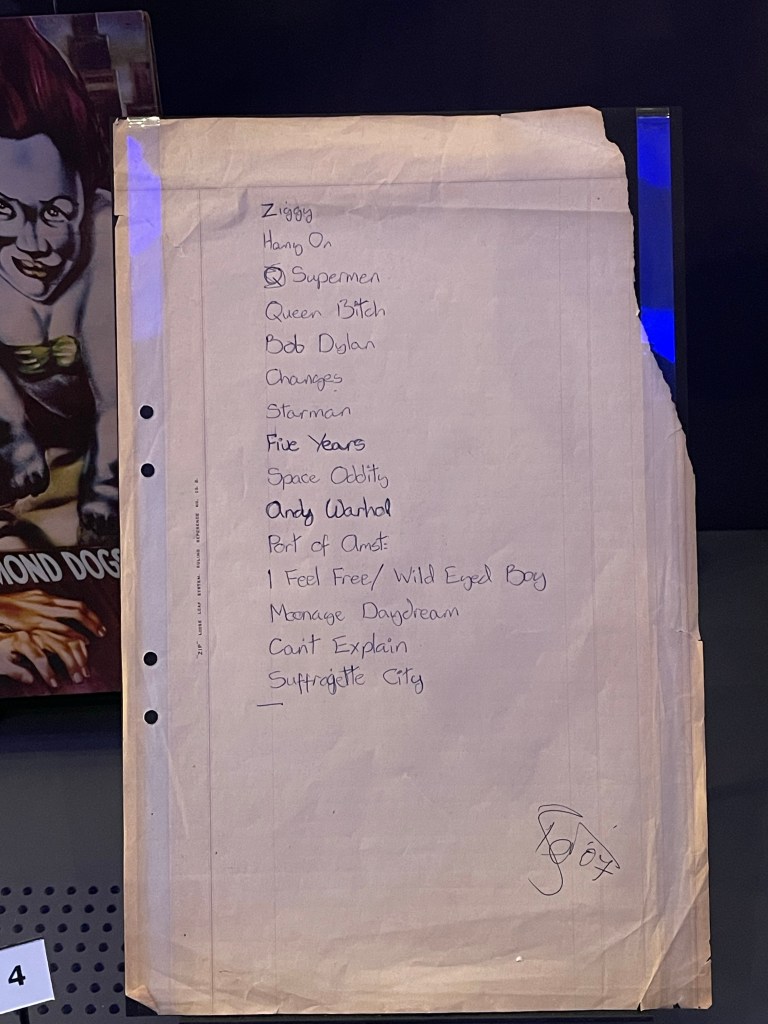 Ziggy
Hang On
Q Supermen
Queen Bitch
Bob Dylan
Changes
Starman
Five Years
Space Oddity
Andy Warhol
Port of Amst:
I Feel Free/ Wild Eyed Boy
Moonage Daydream
Can't Explain
Suffragette City
'07
"ZIP" LOOSE LEAF SYSTEM. RULING REFERENCE NO.
MOND DOGS
4